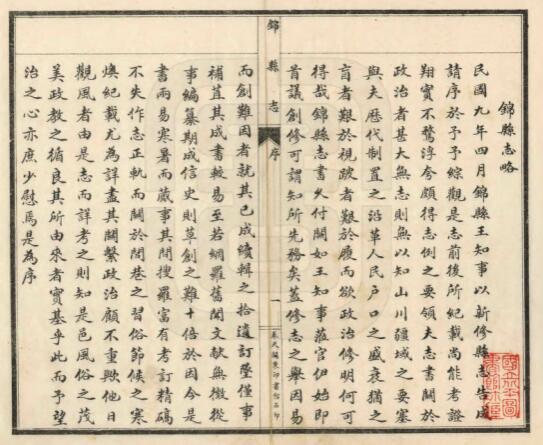 錦縣志略
民國九年四月錦縣王知事以新修縣志告成
請序於予予綜觀是志前後所紀載尚能考證
翔實不鶩浮夸頗得志例之要領夫志書關於
政治者甚大無志則無以知山川疆域之要塞
與夫歷代制置之沿革人民戶口之盛衰猶之
盲者艱於視跛者艱於履而欲政治修明何可
得哉錦縣志書久付闕如王知事蒞官伊始即
首議創修可謂知所先務矣蓋修志之舉因易
錦縣志
序
一
而創難因者就其已成續輯之拾遺訂墜僅事
補苴其成書較易至若網羅舊聞文獻無徵從
事編纂期成信史則草創之難十倍於因今是
書兩易寒暑而蕆事其間搜羅富有考訂精碻
不失作志正軌而關於閭巷之習俗節候之寒
燠紀載尤為詳盡其關繫政治顧不重歟他日
觀風者由是志而詳考之則知是邑風俗之茂
美政教之循良其所由來者實基乎此而予望
治之心亦庶少慰焉是為序